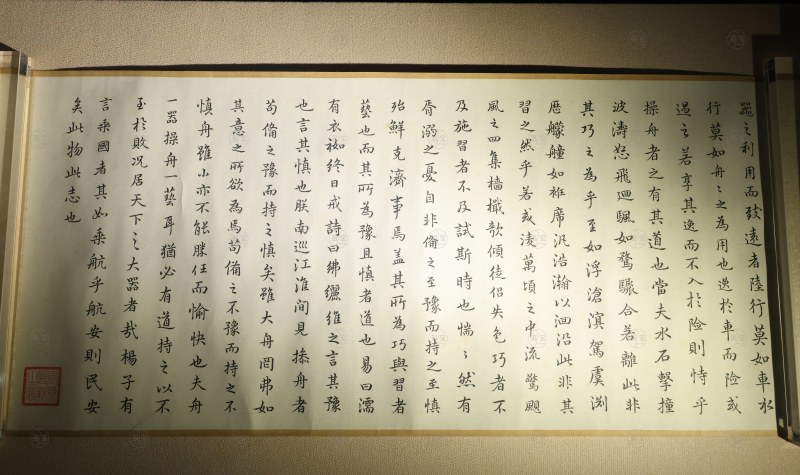 器之利用而致遠者陸行莫如車水
行莫如舟舟之為用也逸於車而險或
過之若享其逸而不入於險則恃乎
操舟者之有其道也當夫水石擊撞
波濤怒飛迴颿如驚驟合若離此非
其巧之為乎至如浮滄溟駕虞淵
歷艨艟如袵席汎浩瀚以洄沿此非其
習之然乎若或淩萬頃之中流驚飃
風之四集檣檥歌傾徒侶失色巧者不
及施習者不及試斯時也惴惴然有
胥溺之憂自非俻之至豫而持之至慎
殆鮮克濟事焉盖其所為巧與習者
藝也而其所為豫且慎者道也易曰濡
有衣袽終日戒詩曰紼纚維之言其豫
也言其慎也朕南巡江淮間見操舟者
苟俻之豫而持之慎矣雖大舟罔弗如
其意之所欲為焉苟備之不豫而持之不
慎舟雖小亦不能勝任而愉快也夫舟
一器操舟一藝耳猶必有道持之以不
至於敗况居天下之大器者哉楊子有
言乘國者其如乘航乎航安則民安
矣此物此志也